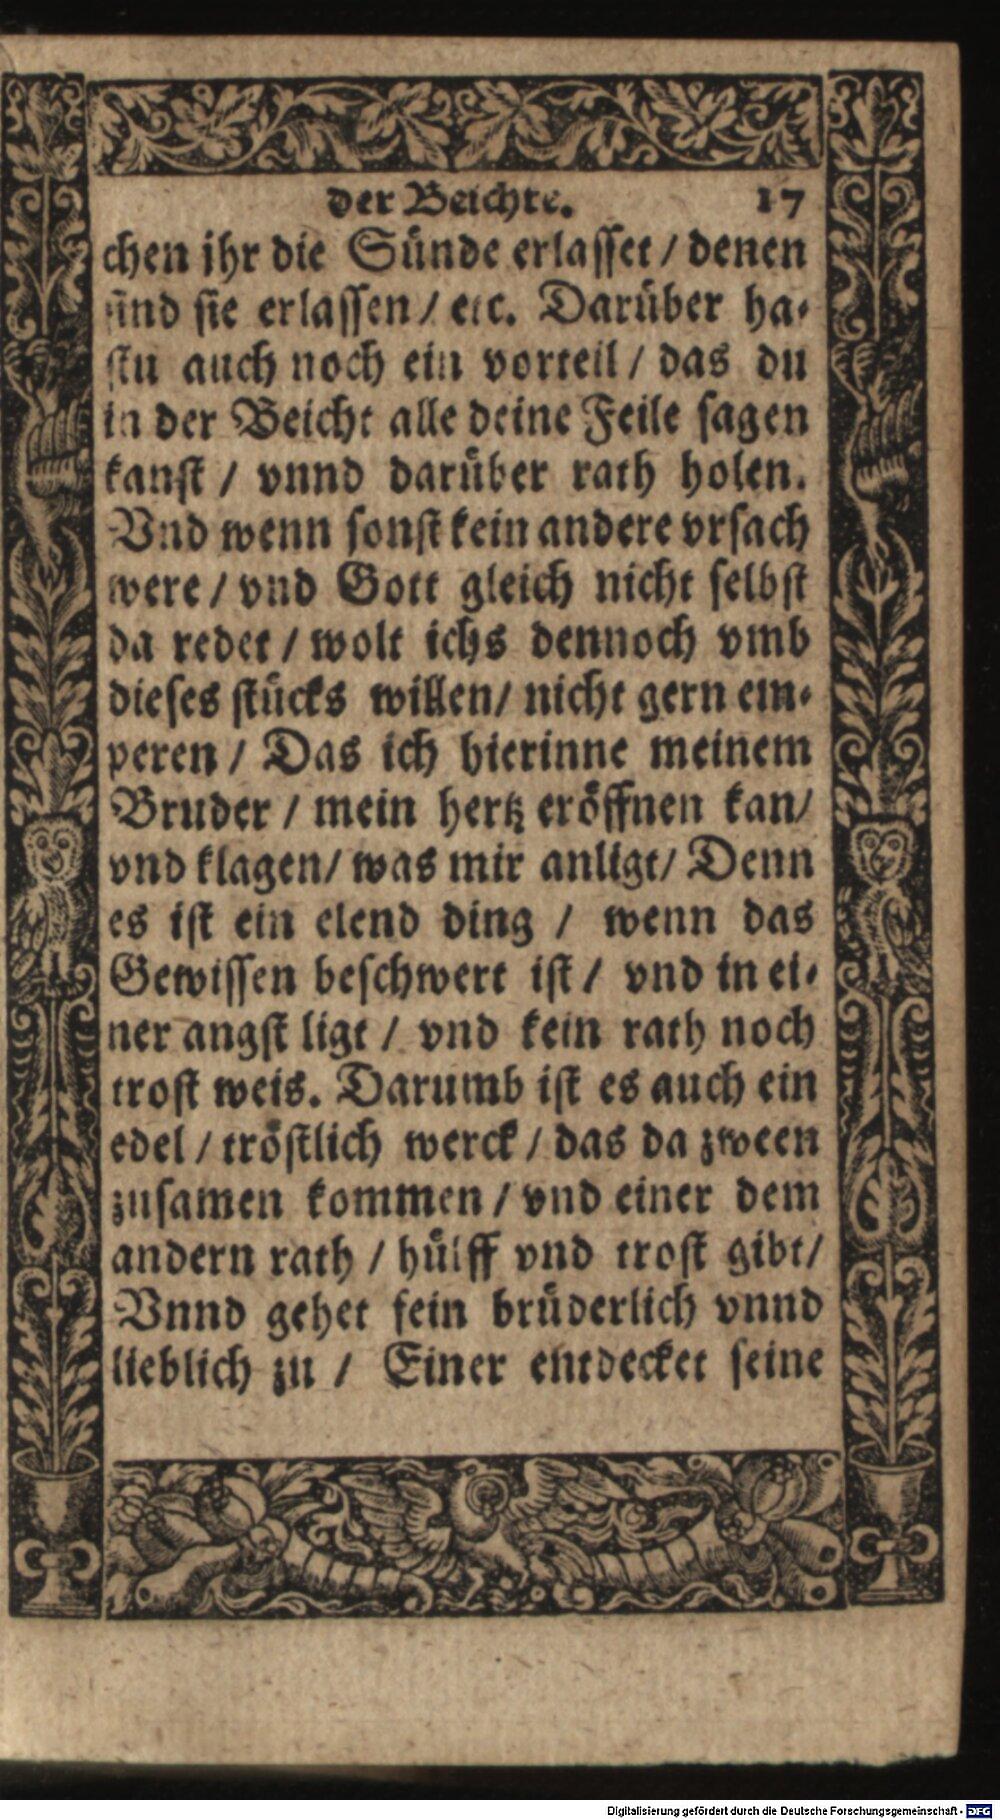 der Beichte. 17
chen ihr die Sünde erlasset / denen
sind sie erlassen / etc. Darüber ha-
stu auch noch ein vorteil / das du
in der Beicht alle deine Feile sagen
kanst / vnnd darüber rath holen.
Vnd wenn sonst kein andere vrsach
were / vnd Gott gleich nicht selbst
da redet / wolt ichs dennoch vmb
dieses stücks willen / nicht gern em-
peren / Das ich hierinne meinem
Bruder / mein hertz eröffnen kan /
vnd klagen / was mir anligt / Denn
es ist ein elend ding / wenn das
Gewissen beschwert ist / vnd in ei-
ner angst ligt / vnd kein rath noch
trost weis. Darumb ist es auch ein
edel / tröstlich werck / das da zween
zusamen kommen / vnd einer dem
andern rath / hülff vnd trost gibt /
Vnnd gehet fein brüderlich vnnd
lieblich zu / Einer entdecket seine
Digitalisierung gefördert durch die Deutsche Forschungsgemeinschaft - DFG